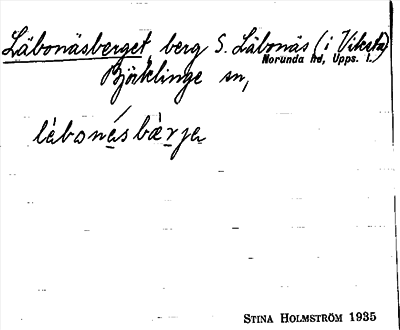 Läbonäsberget, berg S. Läbonäs (i Viksta)
Norunda hd, Upps. l.
Björklinge sn,
lȧbonȧsbȧrje
STINA HOLMSTRÖM 1935